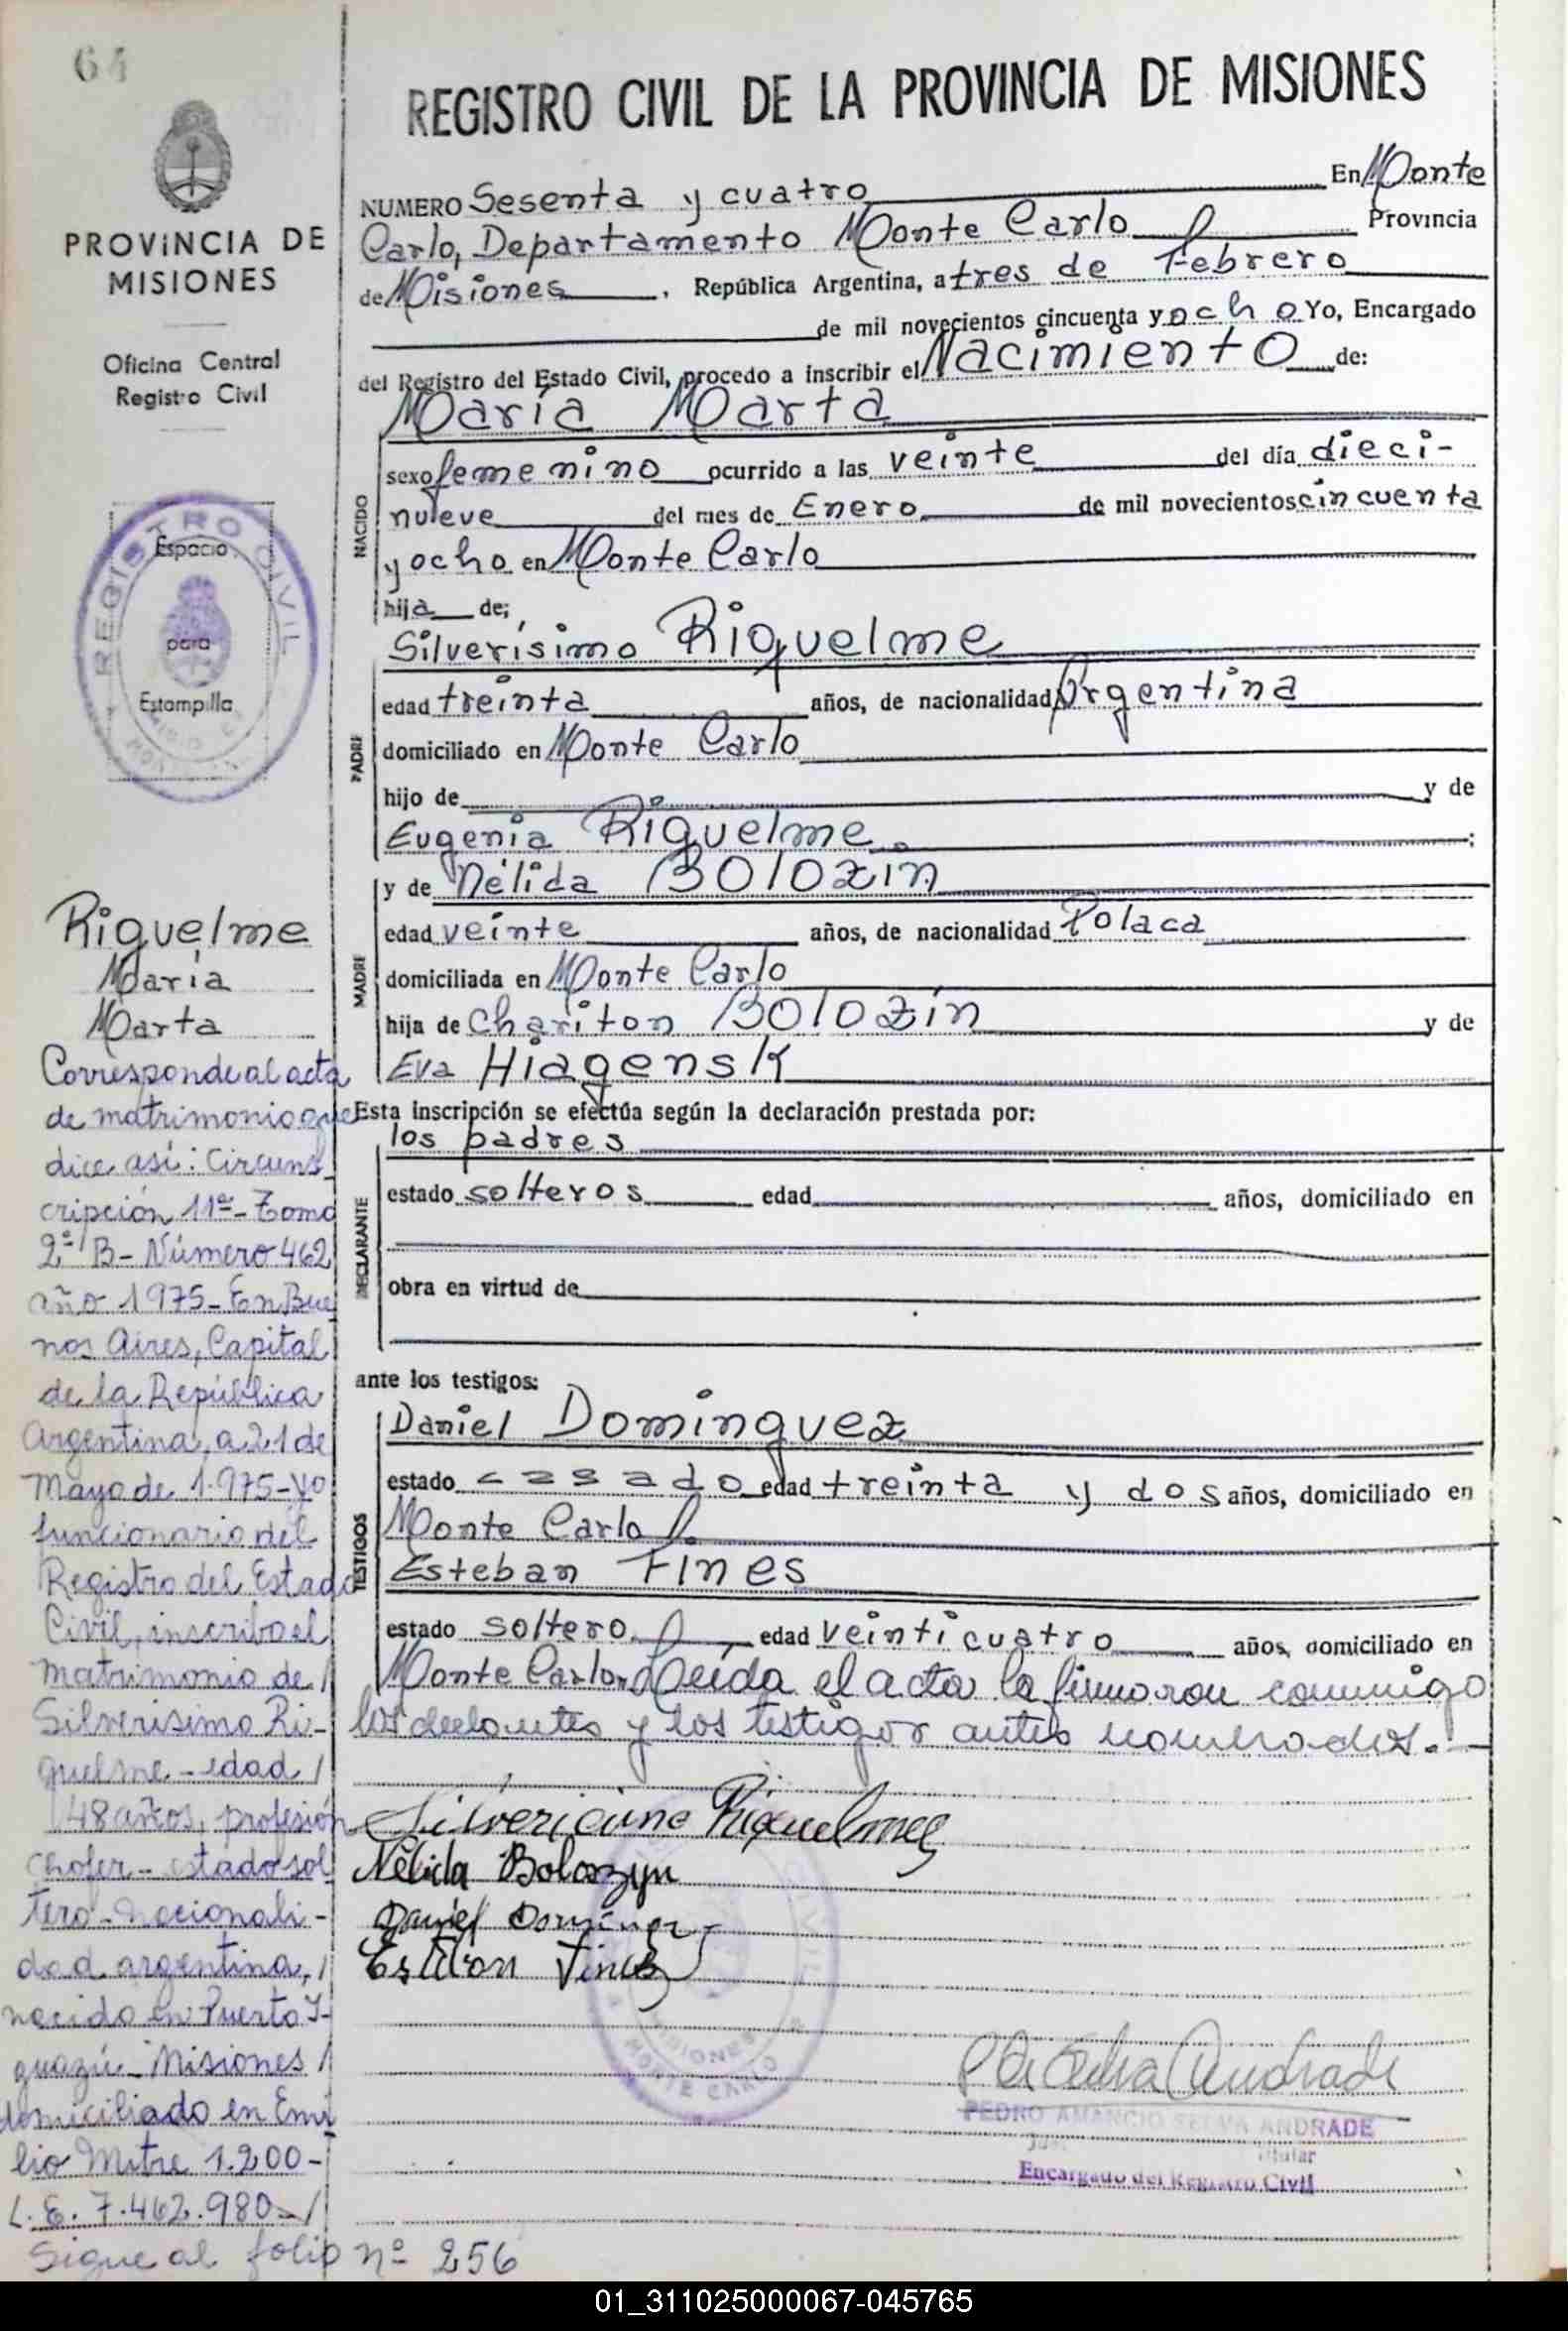 64
PROVINCIA DE
MISIONES
Oficina Central
Registro Civil
REGISTRO CIVIL
Espacio
para
Estampilla
REGISTRO CIVIL DE LA PROVINCIA DE MISIONES
NUMERO Sesenta y cuatro En Monte
Carlo, Departamento Monte Carlo Provincia
de Misiones, República Argentina, a tres de Febrero
de mil novecientos cincuenta y ocho Yo, Encargado
del Registro del Estado Civil, procedo a inscribir el Nacimiento de:
María Marta
NACIDO
sexo femenino ocurrido a las veinte del día dieci-
nueve del mes de Enero de mil novecientos cincuenta
y ocho en Monte Carlo
hija de;
Silverísimo Riquelme
PADRE
edad treinta años, de nacionalidad Argentina
domiciliado en Monte Carlo
hijo de y de
Eugenia Riquelme ;
y de Nélida Bolozin
MADRE
edad veinte años, de nacionalidad Polaca
domiciliada en Monte Carlo
hija de Chariton Bolozín y de
Eva Hiagensk
Esta inscripción se efectúa según la declaración prestada por:
los padres
DECLARANTE
estado solteros edad años, domiciliado en
obra en virtud de
ante los testigos:
Daniel Dominguez
TESTIGOS
estado casado edad treinta y dos años, domiciliado en
Monte Carlo
Esteban Fines
estado soltero edad veinticuatro años, domiciliado en
Monte Carlo. Leída el acta la firmaron conmigo
los declantes y los testigos antes nombrados.-
Riquelme
Nélida Bolozyn
Daniel
Esteban Fines
MONTE CARLO
PEDRO AMANCIO SELVA ANDRADE
Titular
Encargado del Registro Civil
Riquelme
María
Marta
Corresponde al acta
de matrimonio que
dice así: Circuns-
cripción 11ª- Tomo
2º B- Número 462
año 1975- En Bue
nos Aires, Capital
de la República
Argentina, a 21 de
Mayo de 1.975- Yo
funcionario del
Registro del Estado
Civil, inscribo el
matrimonio de /
Silverisimo Ri-
quelme - edad /
48 años, profesión
chofer - estado sol
tero - nacionali-
dad argentina, /
nacido en Puerto I-
guazú - Misiones /
domiciliado en Emi
lio Mitre 1.200-
L.E. 7.462.980- /
Sigue al folio nº 256
01_311025000067-045765